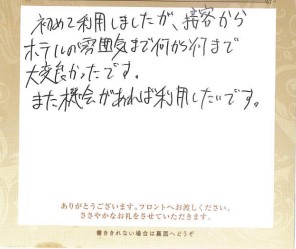 初めて利用しましたが、接客から
ホテルの雰囲気まで何から何まで
大変良かったです。
また機会があれば利用したいです。
ありがとうございます。フロントへお渡しください。
ささやかなお礼をさせていただきます。
書ききれない場合は裏面へどうぞ